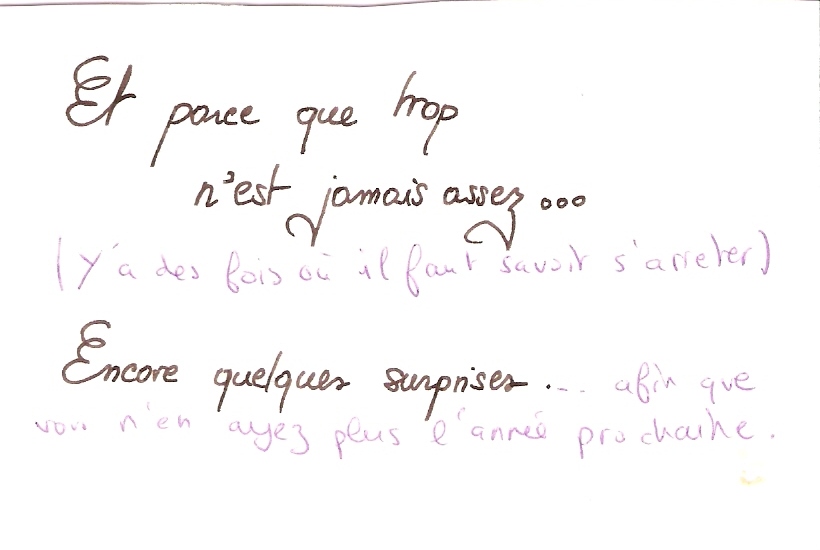 Et parce que trop
n'est jamais assez...
(Y'a des fois où il faut savoir s'arreter)
Encore quelques surprises... afin que
vous n'en ayez plus l'année prochaine.